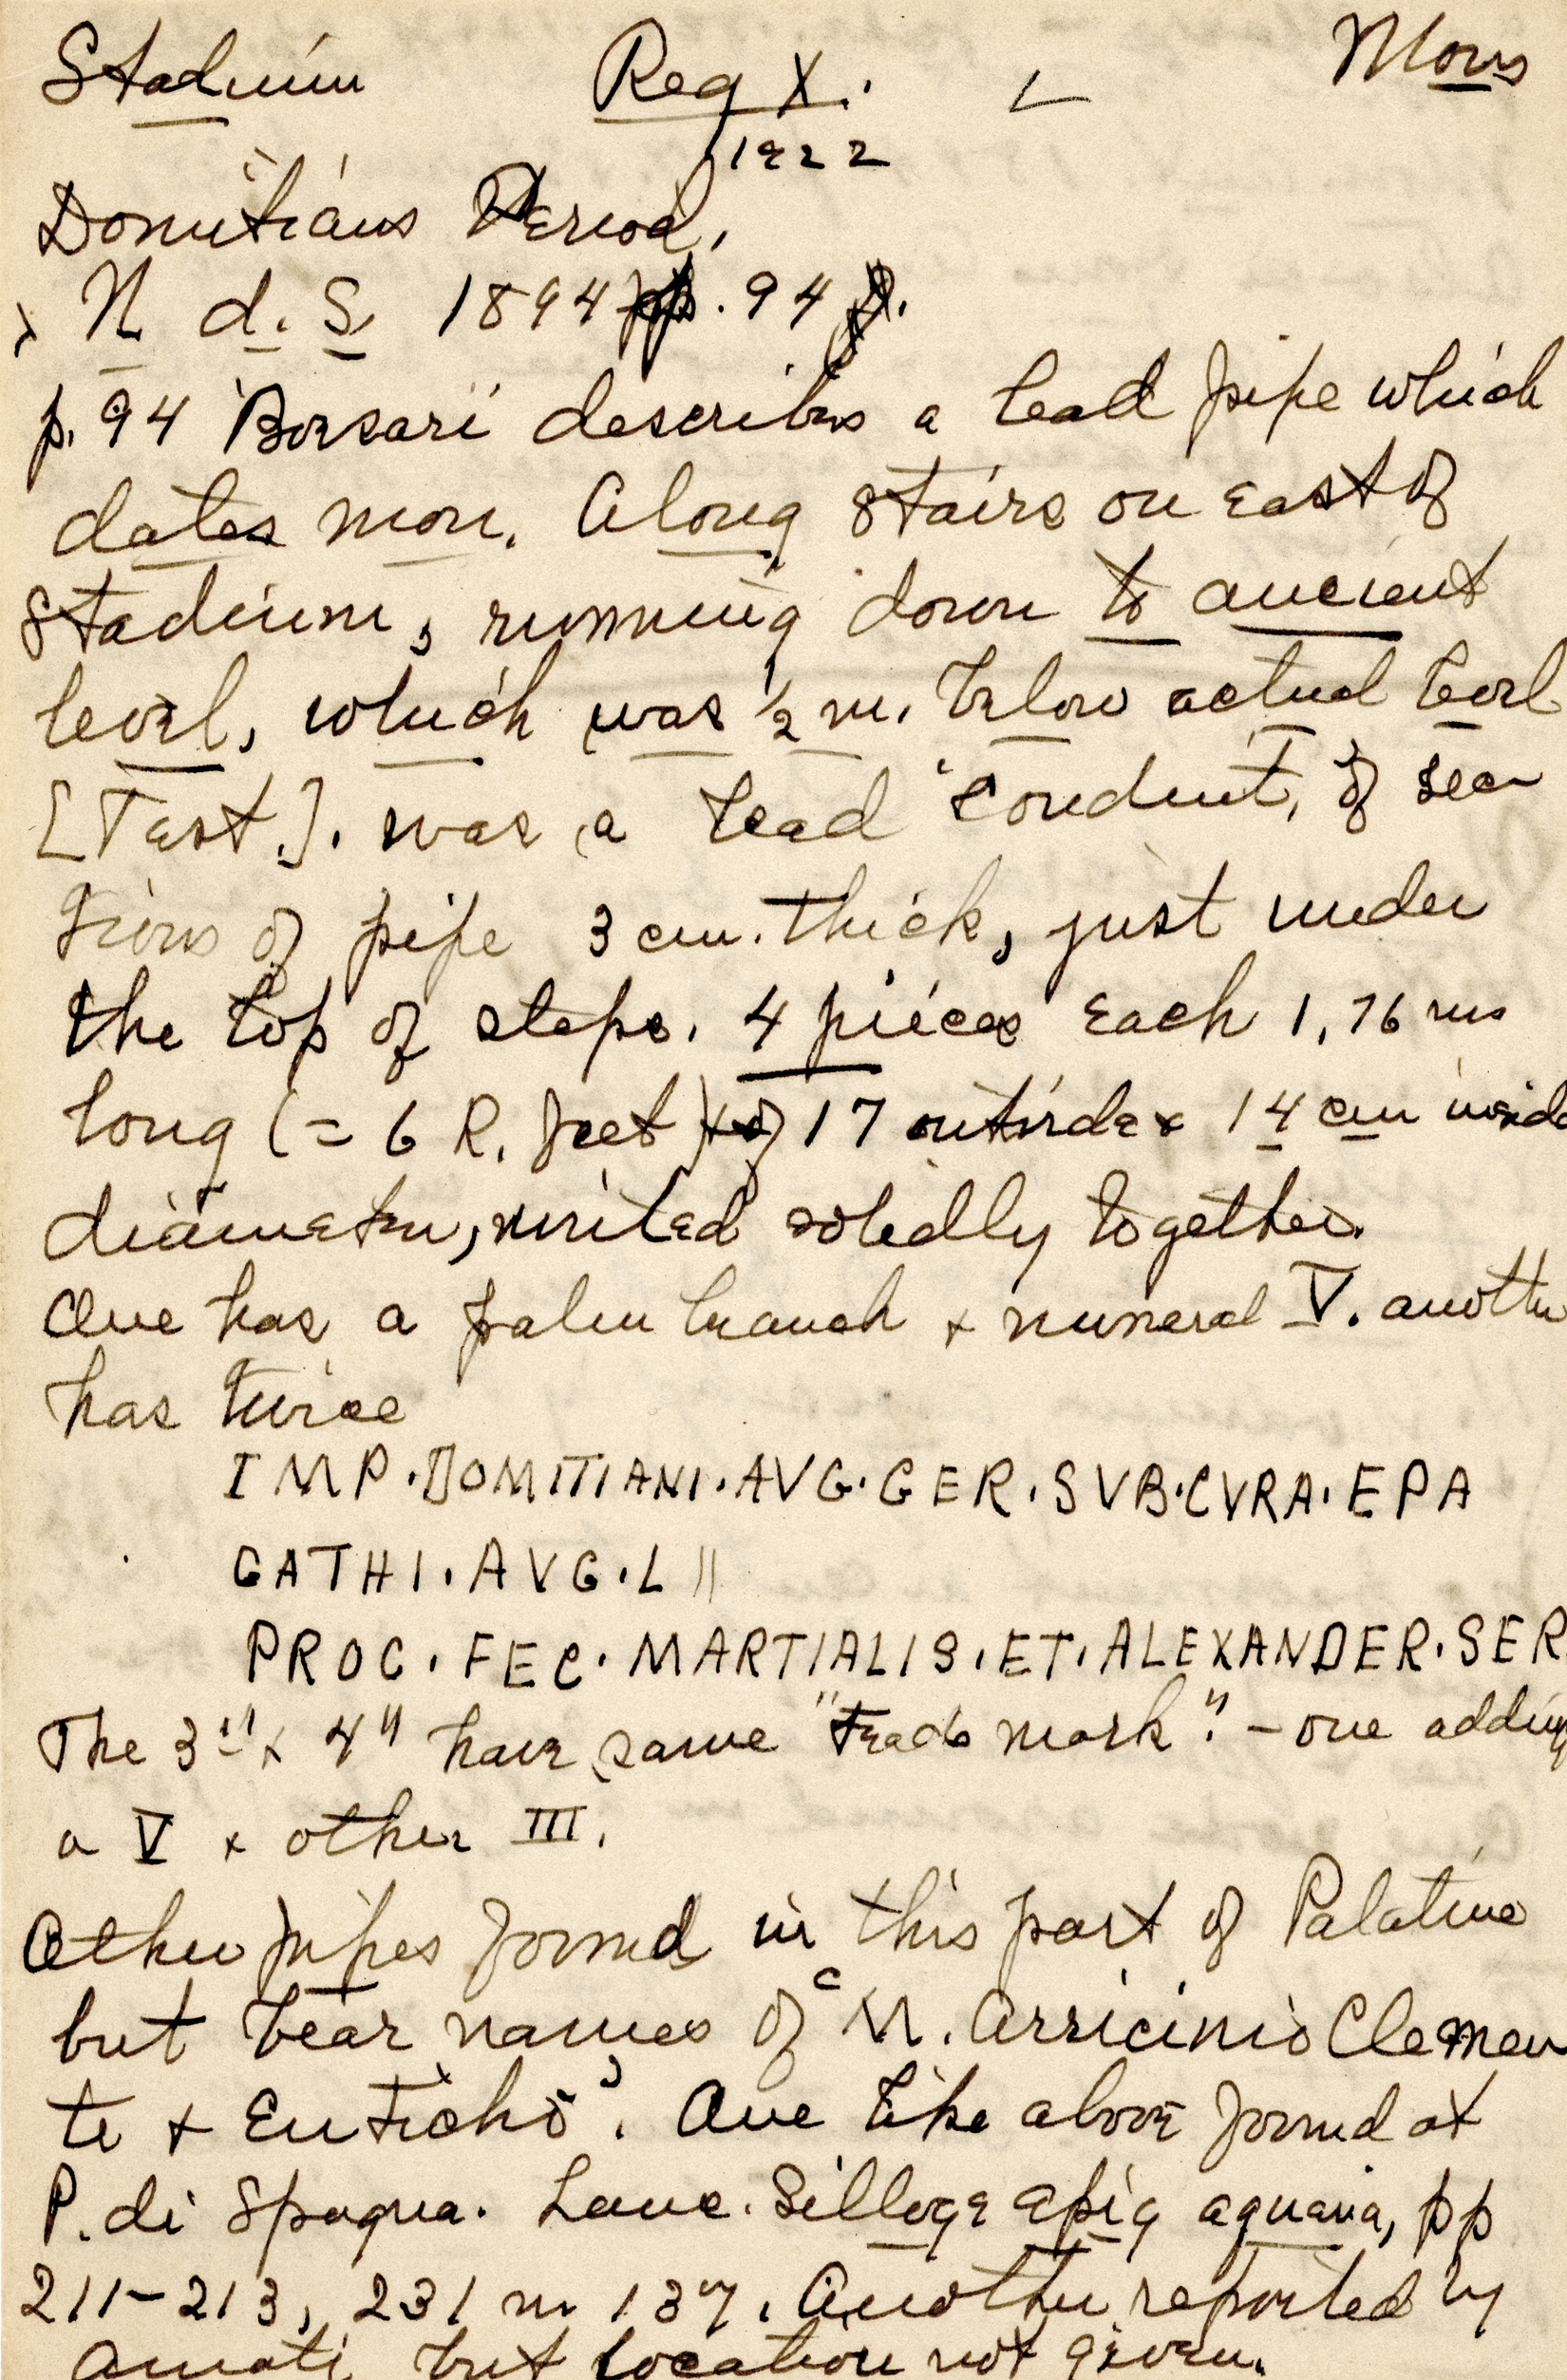 Stadium Reg X. Mons
1922
Domitian's Period,
N d. S. 1894 pp. 94 ff.
p. 94 Borsari describes a lead pipe which
dates mon. Along stairs on east of
Stadium, running down to ancient
level, which was ½ m. below actual level
[Test.]. was a lead "conduit, of sec
tions of pipe 3 cm. thick, just under
the top of steps. 4 pieces each 1,76 ms
long (= 6 R. feet) of 17 outside & 14 cm inside
diameter, united solidly together.
One has a palm branch & numeral V. another
has twice
IMP·DOMITIANI·AVG·GER·SVB·CVRA·EPA
GATHI·AVG·L ||
PROC·FEC·MARTIALIS·ET·ALEXANDER·SER
The 3" & 4" have same "trade mark". – one adding
a V & other III.
Other pipes found in this part of Palatine
but bear names of "M. Arricinio Clemen
te & Euticho". One like above found at
P. di Spagna. Lanc. Silloge epig aquaria, pp
211–213, 231 n. 137. Another reported by
Amati but location not given.